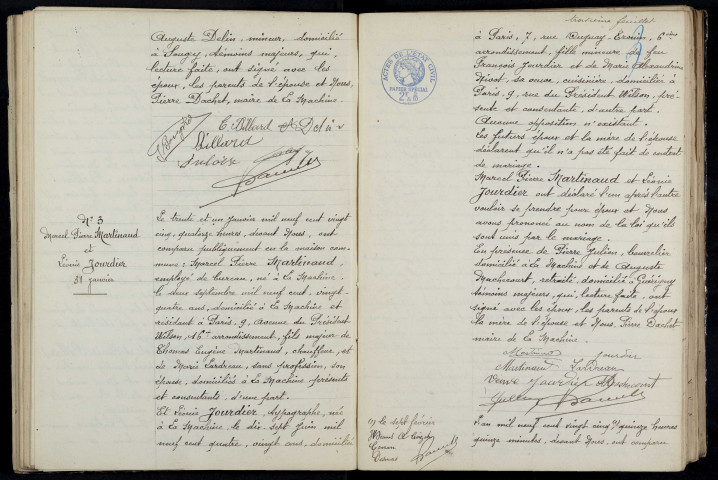 Auguste Delin, mineur, domicilié
à Sauges, témoins majeurs, qui,
lecture faite, ont signé avec les
époux, les parents de l'épouse et Nous,
Pierre Dachet, maire de La Machine.
Billard
N° 3
Marcel Pierre Martinaud
et
Léonie Jourdier
31 Janvier
Le trente et un Janvier mil neuf cent vingt
cinq, quatorze heures, devant Nous, ont
comparu publiquement en la maison com-
mune: Marcel Pierre Martinaud,
employé de bureau, né à La Machine
le deux septembre mil neuf cent, vingt-
quatre ans, domicilié à La Machine et
résidant à Paris, 9, avenue du Président
Wilson, 16e arrondissement, fils majeur de
Thomas Eugène Martinaud, chauffeur, et
de Marie Lardreau, sans profession, son
épouse, domiciliés à La Machine présents
et consentants, d'une part.
Et Léonie Jourdier, typographe, née
à La Machine le dix sept Juin mil
neuf cent quatre, vingt ans, domiciliée
troisième feuillet
ACTES DE L'ÉTAT CIVIL
PAPIER SPÉCIAL
à Paris, 7, rue Duguay-Trouin, 6ème
arrondissement, fille mineure de feu
François Jourdier et de Marie Alexandrine
sa veuve, cuisinière, domiciliée à
Paris, 9, rue du Président Wilson, pré-
sente et consentante, d'autre part.
Aucune opposition n'existant.
Les futurs époux et la mère de l'épouse
déclarent qu'il n'a pas été fait de contrat
de mariage.
Marcel Pierre Martinaud et Léonie
Jourdier ont déclaré l'un après l'autre
vouloir se prendre pour époux et Nous
avons prononcé au nom de la loi qu'ils
sont unis par le mariage.
En présence de Pierre Julien, bourrelier
domicilié à La Machine et de Auguste
Machecourt, retraité, domicilié à Guérigny
témoins majeurs, qui, lecture faite, ont
signé avec les époux, les parents de l'époux
la mère de l'épouse et Nous, Pierre Dachet
maire de La Machine.
Martinaud Jourdier
Martinaud Lardreau
Veuve Jourdier Machecourt
(1) le sept février
L'an mil neuf cent vingt cinq, (1) quinze heures
quinze minutes, devant Nous, ont comparu